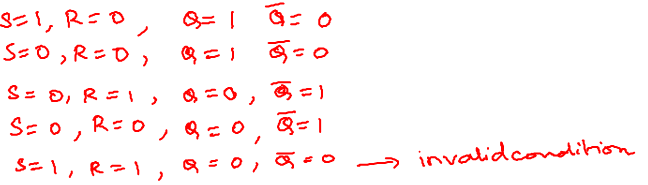 S=1, R=0, Q=1 Q̅=0
S=0, R=0, Q=1 Q̅=0
S=0, R=1, Q=0, Q̅=1
S=0, R=0, Q=0, Q̅=1
S=1, R=1, Q=0, Q̅=0 → invalid condition